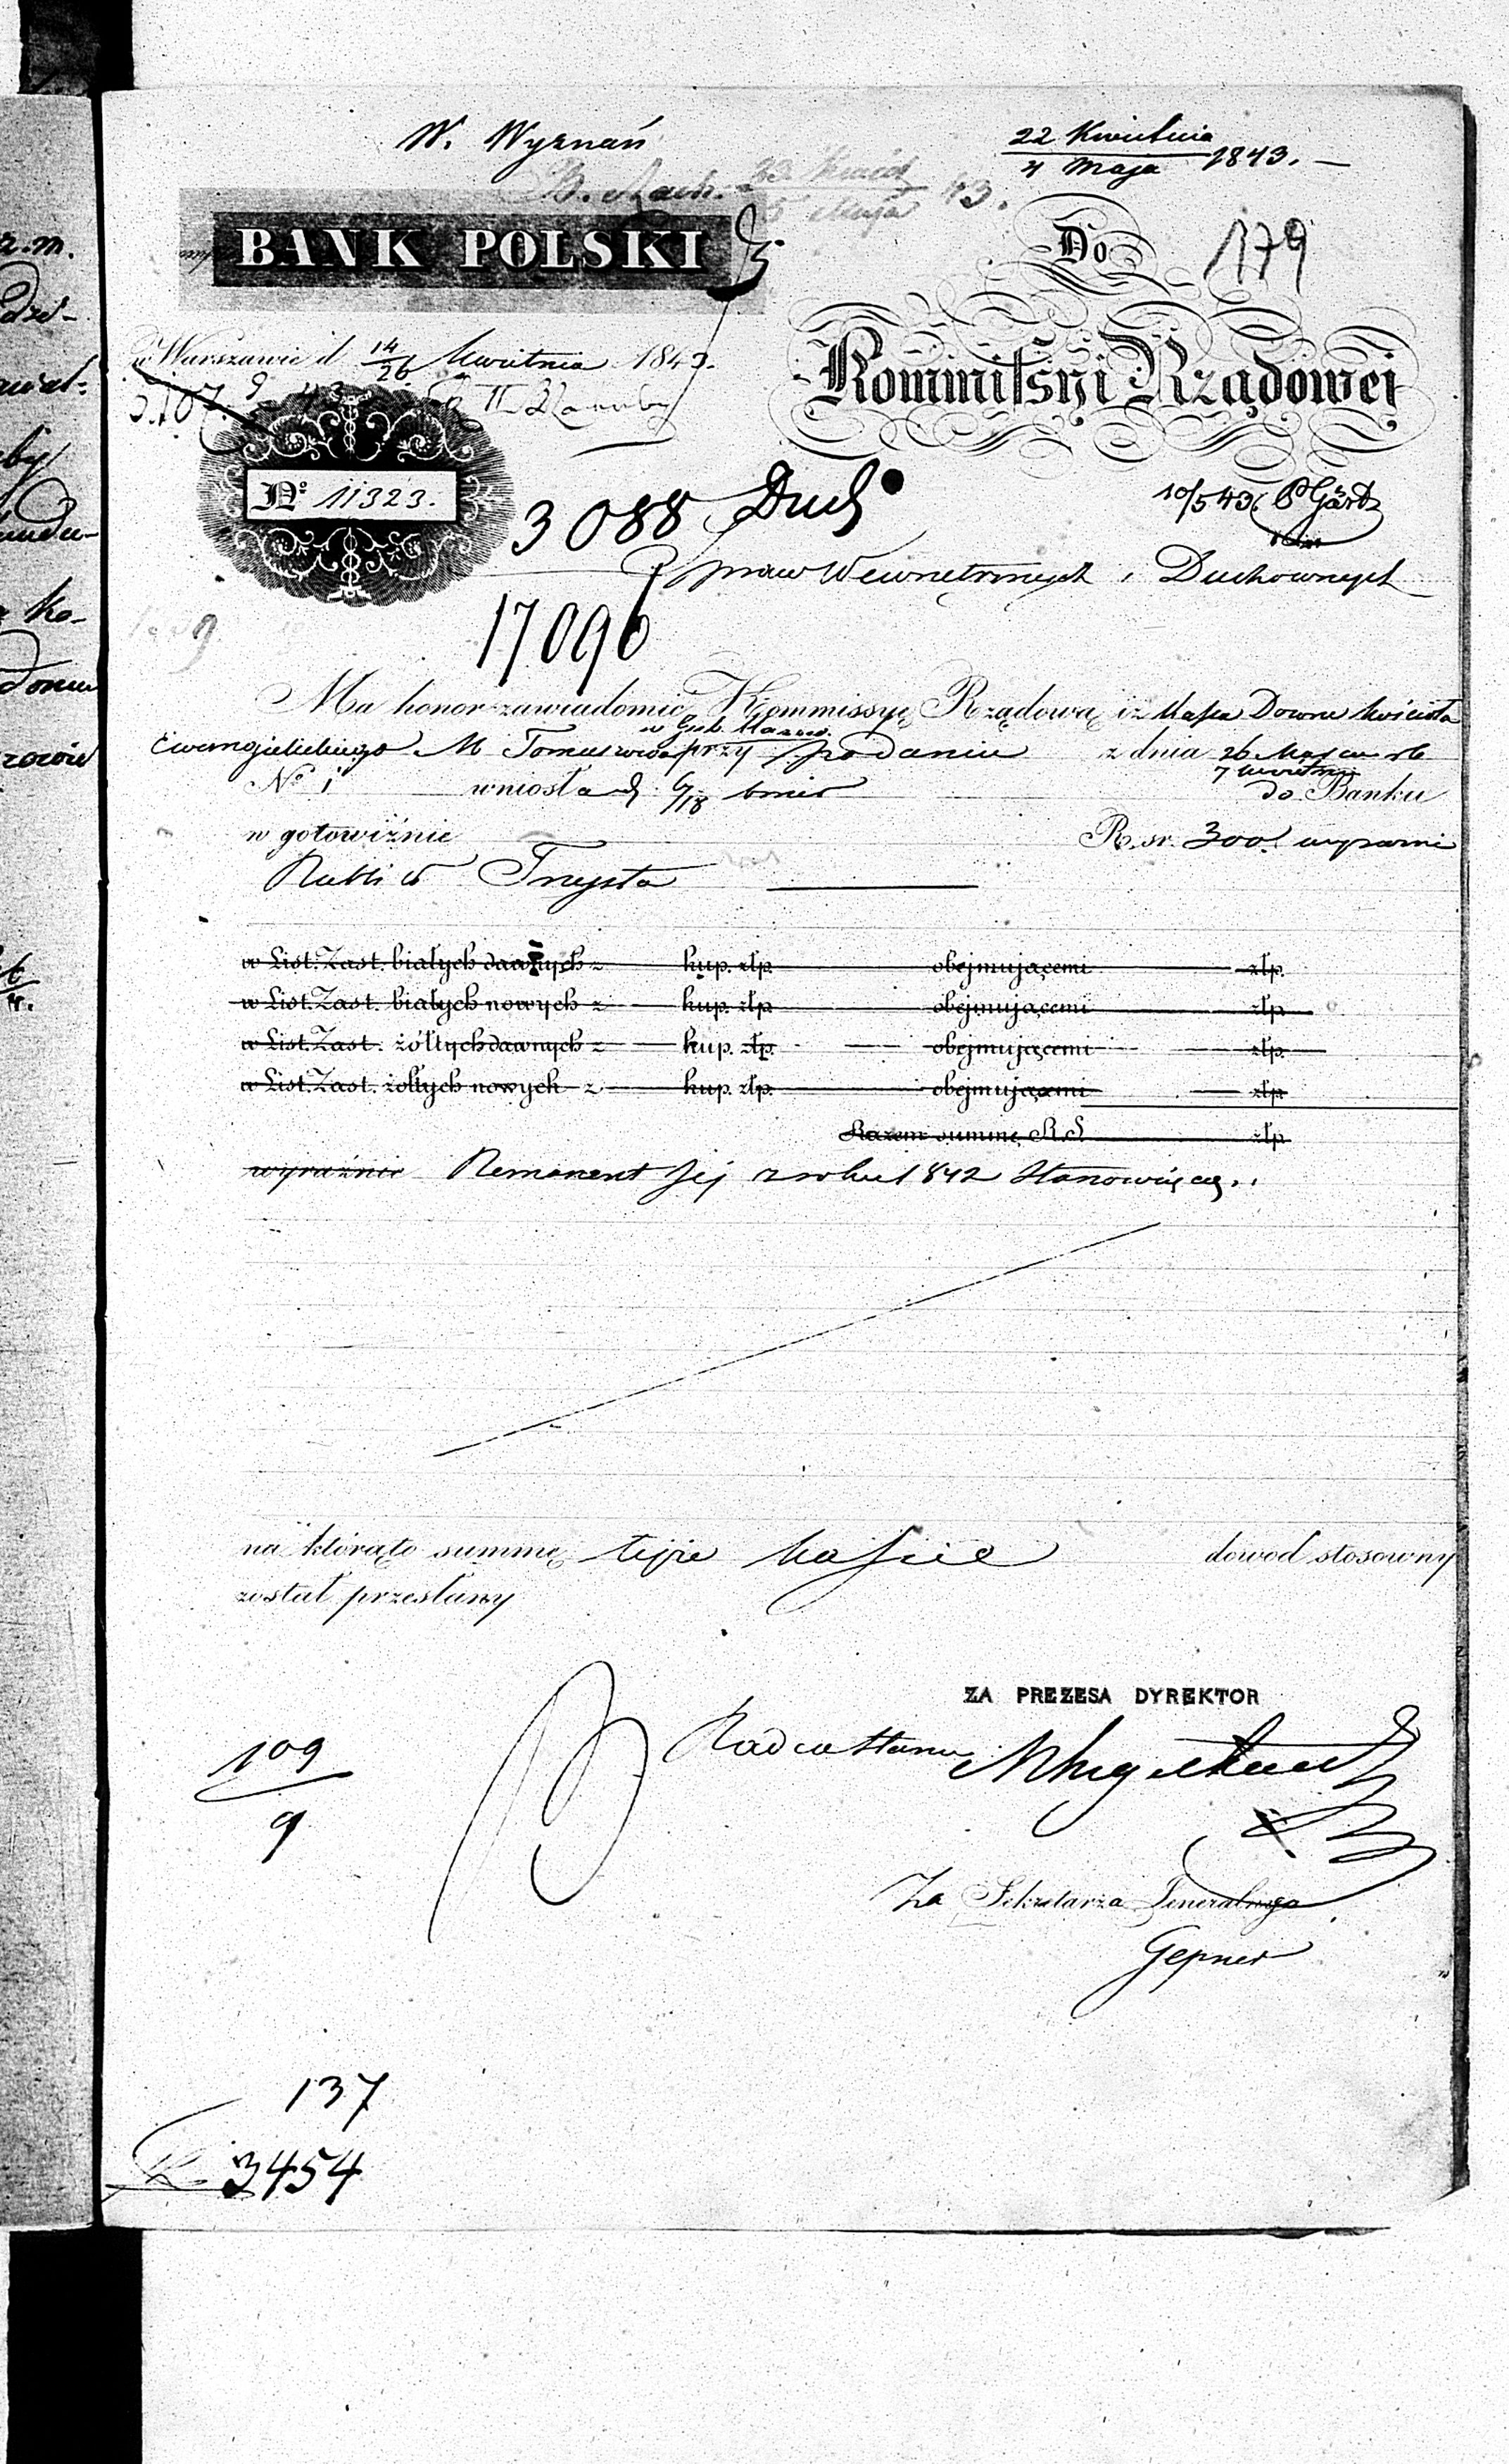 W. Wyznań
22 Kwietnia
4 Maja 1843. —
B. Rach. 23 5 Maja 43.
BANK POLSKI
Do
179
w Warszawie d. 14/26 Kwietnia 1843.
Kommissyi Rządowej
N° 11323.
3088 Duch
10/5 43
Spraw Wewnętrznych i Duchownych
17096
Ma honor zawiadomić Kommissyę Rządową iż Kassa Dozoru Kościoła
w Gub. Mazow.
Ewangielickiego M Tomaszowa przy podaniu z dnia 26 Marca rb
7 Kwietnia
N° 1 wniosła d. 6/18 bmr do Banku
w gotowiźnie R. sr. 300. wyraźnie
Rubli sr Trzysta
w List. Zast. białych dawnych z kup. złp. obejmującemi złp.
w List. Zast. białych nowych z kup. złp. obejmującemi złp.
w List. Zast. żółtych dawnych z kup. złp. obejmującemi złp.
w List. Zast. żółtych nowych z kup. złp. obejmującemi złp.
Razem summę R.S. złp.
wyraźnie Remanent Jej z roku 1842 stanowiącą.
na którąto summę tejże Kassie dowod stosowny
został przesłany
ZA PREZESA DYREKTOR
Radca Stanu
109
9
Za Sekretarza Generalnego
Gepner
137
3454